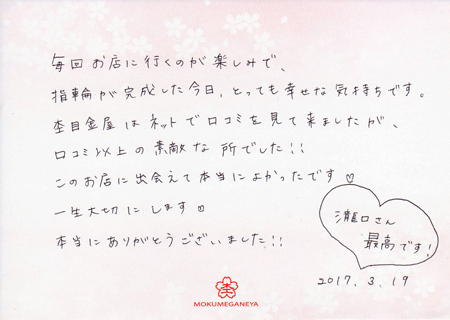 毎回お店に行くのが楽しみで、
指輪が完成した今日、とっても幸せな気持ちです。
杢目金屋はネットで口コミを見て来ましたが、
口コミ以上の素敵な所でした!!
このお店に出会えて本当によかったです♡
一生大切にします♡
本当にありがとうございました!!
瀧口さん
最高です!
2017.3.19
杢
MOKUMEGANEYA